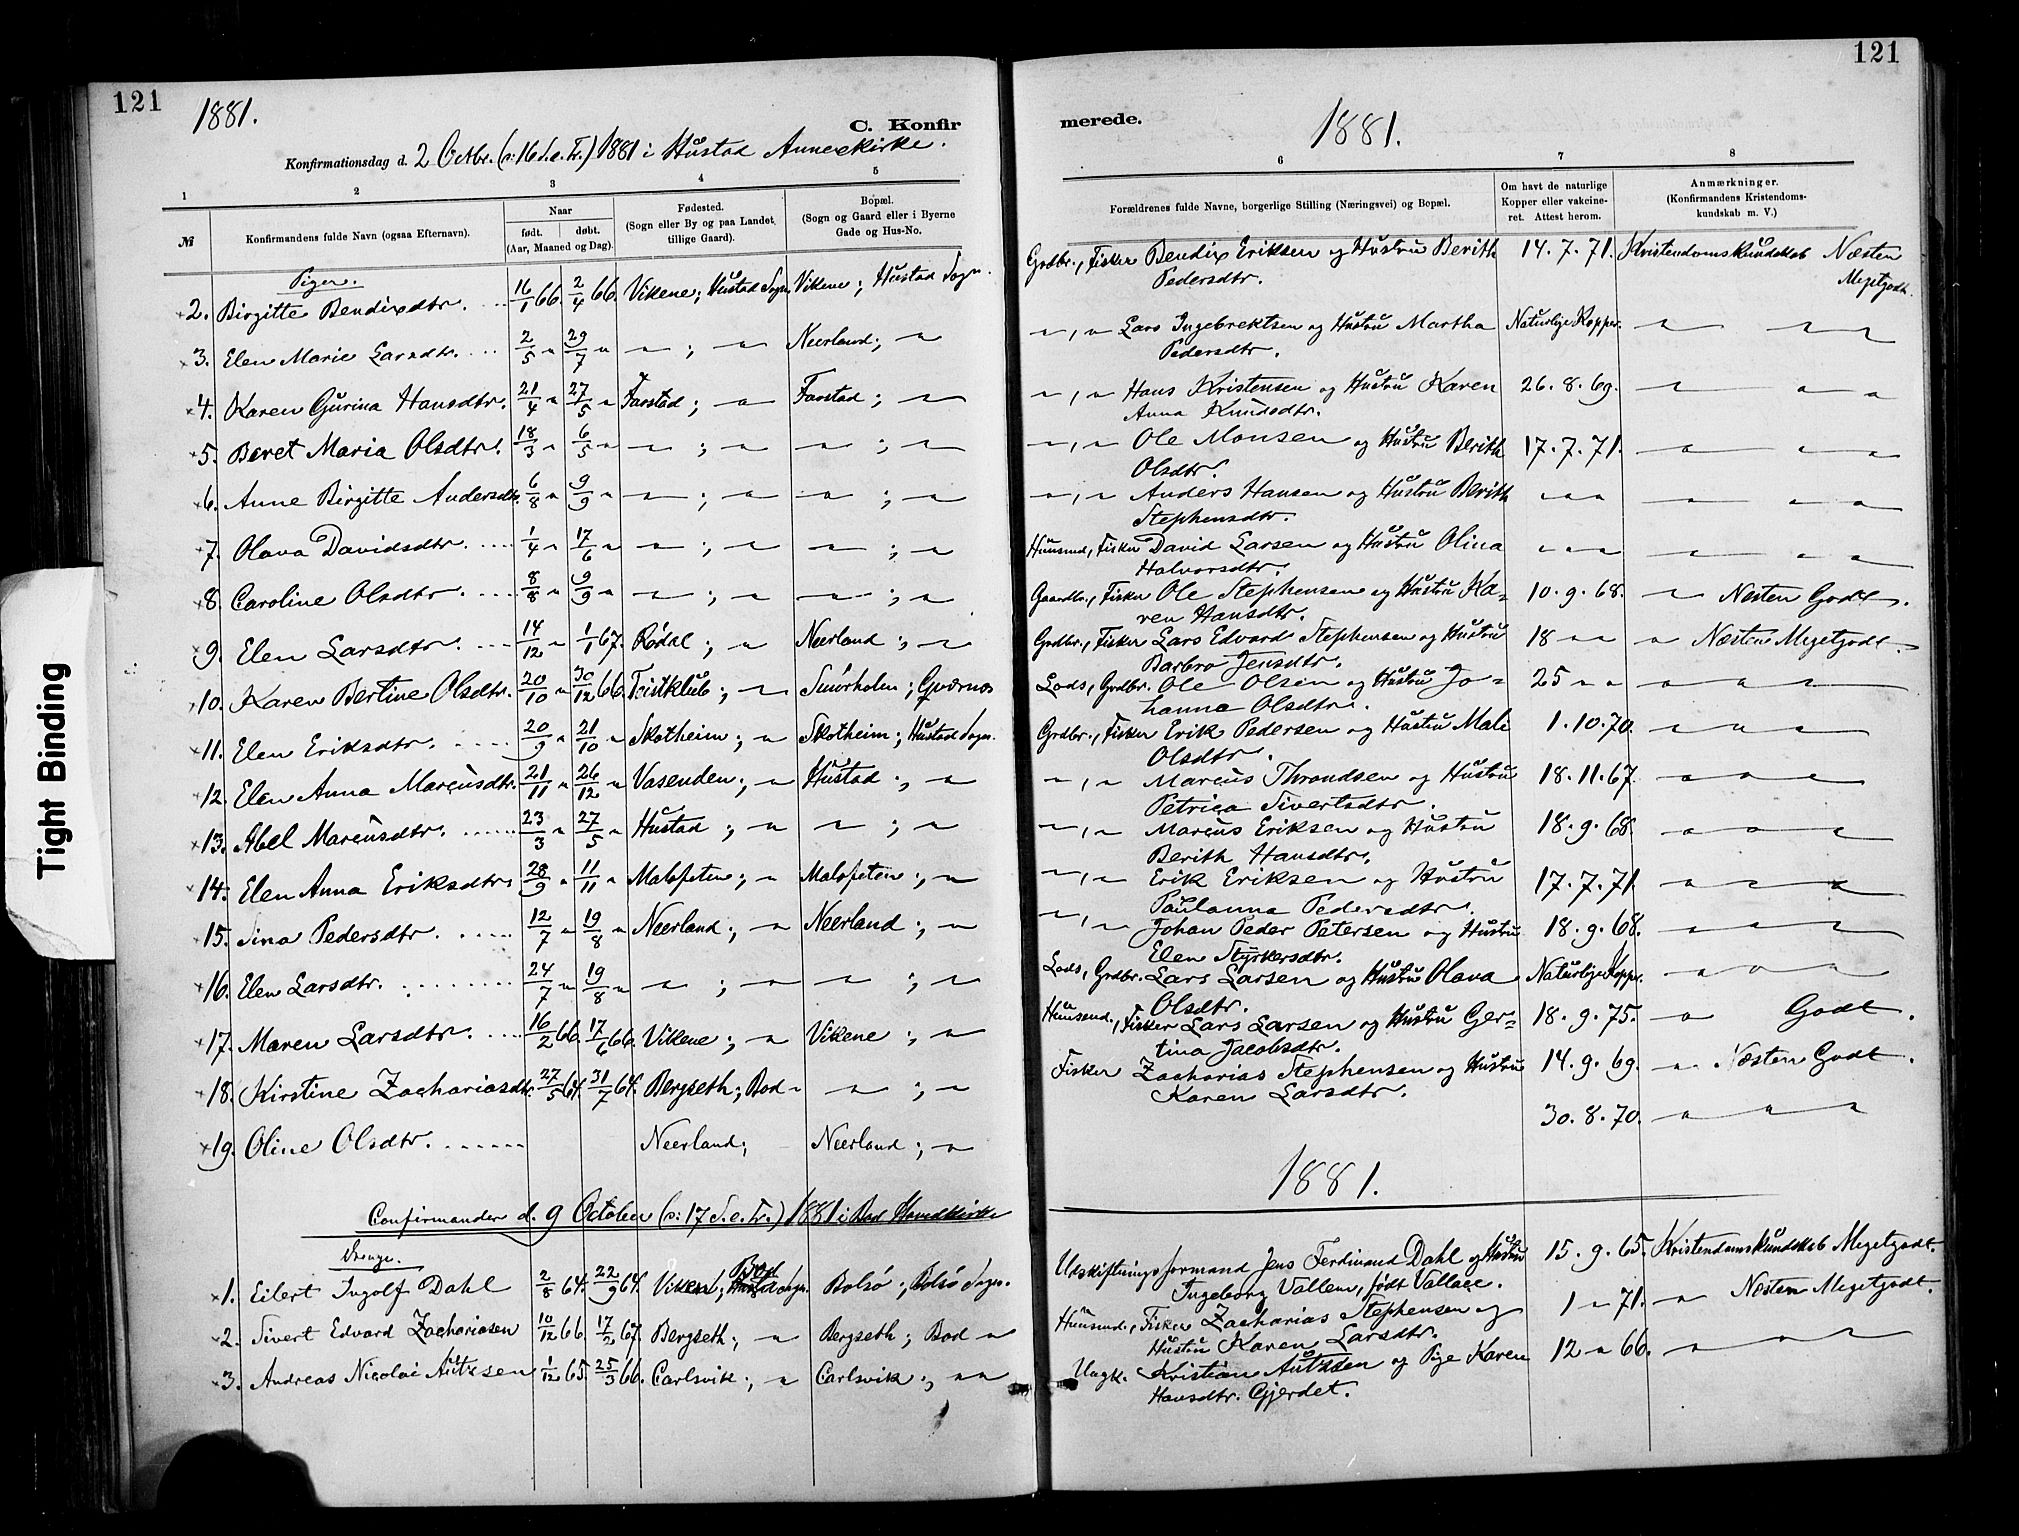 121
1881.
C. Konfir
Konfirmationsdag d. 2 Octbr. (o: 16 S. e. Tr.) 1881 i Hustad Annexkirke.
1 2 3 4 5
№
Konfirmandens fulde Navn (ogsaa Efternavn).
Naar
født. døbt.
(Aar, Maaned og Dag).
Fødested.
(Sogn eller By og paa Landet,
tillige Gaard).
Bopæl.
(Sogn og Gaard eller i Byerne
Gade og Hus-No.
Piger.
2. Birgitte Bendixdtr. 16/1 66. 2/4 66. Vikene; Hustad Sogn. Vikene; Hustad Sogn.
3. Elen Marie Larsdtr. 2/5 " 29/7 " " ; " Neerland; "
4. Karen Gurina Hansdtr. 21/4 " 27/5 " Farstad; " Farstad; "
5. Beret Maria Olsdtr. 18/3 " 6/5 " " ; " " ; "
6. Anne Birgitte Andersdtr. 6/8 " 9/9 " " ; " " ; "
7. Olava Davidsdtr. 1/4 " 17/6 " " ; " " ; "
8. Caroline Olsdtr. 8/8 " 9/9 " " ; " " ; "
9. Elen Larsdtr. 14/12 " 1/1 67. Rødal; " Neerland; "
10. Karen Bertine Olsdtr. 20/10 " 30/12 66. Teistklub; " Smørholm; Qværnæs
11. Elen Eriksdtr. 20/9 " 21/10 " Skotheim; " Skotheim; Hustad Sogn.
12. Elen Anna Marcusdtr. 21/11 " 26/12 " Vasenden; " Hustad; "
13. Abel Marcusdtr. 23/3 " 27/5 " Hustad; " " ; "
14. Elen Anna Eriksdtr. 28/9 " 11/11 " Malefeten; " Malefeten; "
15. Sina Pedersdtr. 12/7 " 19/8 " Neerland; " Neerland; "
16. Elen Larsdtr. 24/7 " 19/8 " " ; " " ; "
17. Maren Larsdtr. 16/2 66. 17/6 66. Vikene; " Vikene; "
18. Kirstine Zachariasdtr. 27/5 64. 31/7 64. Bergseth; Bod " " ; "
19. Oline Olsdtr. Neerland; Neerland; "
Confirmander d. 9 October (o: 17 S. e. Tr.) 1881 i Bod Hovedkirke
Drenge.
1. Eilert Ingolf Dahl 2/8 64. 22/9 64. Viken; Bod Sogn. Bolsø; Bolsø Sogn.
2. Sivert Edvard Zachariasen 10/12 66. 17/2 67. Bergseth; " Bergseth; Bod "
3. Andreas Nicolai Antzsen 1/12 65. 25/3 66. Carlsvik; " Carlsvik; " "
Tight Binding
121
merede.
1881.
6 7 8
Forældrenes fulde Navne, borgerlige Stilling (Næringsvei) og Bopæl.
Om havt de naturlige
Kopper eller vakcine-
ret. Attest herom.
Anmærkninger.
(Konfirmandens Kristendoms-
kundskab m. V.)
Grdbr., Fisker Bendix Eriksen og Hustru Berith 14. 7. 71. Kristendomskundskab Næsten
Pedersdtr. Megetgodt.
" , " Lars Ingebrektsen og Hustru Martha Naturlige Kopper. " " "
Pedersdtr.
" , " Hans Kristensen og Hustru Karen 26. 8. 69. " " "
Anna Knudsdtr.
" , " Ole Monsen og Hustru Berith 17. 7. 71. " " "
Olsdtr.
" , " Anders Hansen og Hustru Berith " " " " " "
Stephensdtr.
Huusmd., Fisker David Larsen og Hustru Olina " " " " " "
Halvorsdtr.
Gaardbr., Fisker Ole Stephensen og Hustru Ka- 10. 9. 68. " Næsten Godt.
ren Hansdtr.
Grdbr., Fisker Lars Edvard Stephensen og Hustru 18 " " " Næsten Megetgodt.
Barbro Jensdtr.
Lods, Grdbr. Ole Olsen og Hustru Jo- 25 " " " " "
hanna Olsdtr.
Grdbr., Fisker Erik Pedersen og Hustru Mali 1. 10. 70. " " "
Olsdtr.
" , " Marcus Throndsen og Hustru 18. 11. 67. " " "
Petrica Sivertsdtr.
" , " Marcus Eriksen og Hustru 18. 9. 68. " " "
Berith Hansdtr.
" , " Erik Eriksen og Hustru 17. 7. 71. " " "
Paulanna Pedersdtr.
" , " Johan Peder Petersen og Hustru 18. 9. 68. " " "
Elen Styrkersdtr.
Lods, Grdbr. Lars Larsen og Hustru Olava Naturlige Kopper. " " "
Olsdtr.
Huusmd., Fisker Lars Larsen og Hustru Ger- 18. 9. 75. " Godt.
tina Jacobsdtr.
Fisker Zacharias Stephensen og Hustru 14. 9. 69. " Næsten Godt.
Karen Larsdtr.
30. 8. 70. " " "
1881.
Udskiftningsformand Jens Ferdinand Dahl og Hustru 15. 9. 65. Kristendomskundskab Megetgodt.
Ingeborg Vallem, født Vallace.
Huusmd., Fisker Zacharias Stephensen og 1 " 71. " Næsten Megetgodt.
Hustru Karen Larsdtr.
Ungk. Kristian Antzsen og Pige Karen 12 " 66. " " "
Hansdtr. Gjerdet.